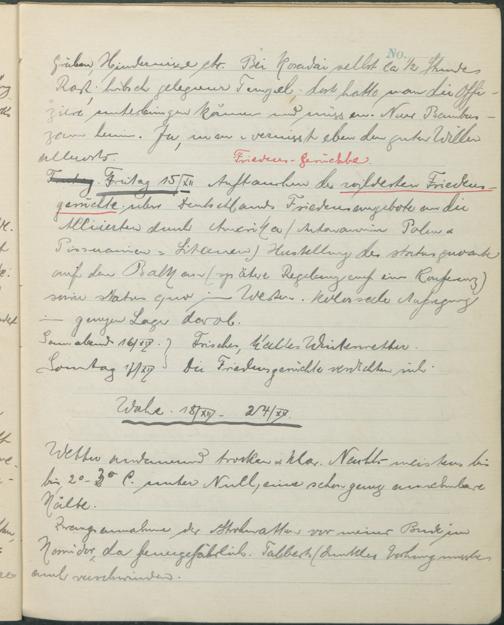 No.
Gräben, Hindernisse etc. Bei Kosakai selbst ca ½ Stunde
Rast. hübsch gelegener Tempel. dort hatte man die Offi-
ziere unterbringen können und müssen. Neue Bambus-
zaun herum. Ja, man vermisst eben den guten Willen
allerorts.
Friedens-Gerüchte
Freitag 15/XII Auftauchen der wildesten Friedens-
gerüchte über Deutschlands Friedensangebote an die
Alliierten durch Amerika (Autonomie Polen u
Litauen) Herstellung des status quo ante
auf dem Balkan (spätere Regelung auf einer Konferenz)
sowie status quo im Westen. Kolossale Aufregung
im ganzen Lager darob.
Sonnabend 16/XII } Frisches, kaltes Winterwetter.
Sonntag 17/XII } Die Friedensgerüchte verdichten sich.
Woche 18/XII - 24/XII
Wetter andauernd trocken u klar. Nachts meistens bis
bis 2°-3° C. unter Null, eine schon genug annehmbare
Kälte.
der Strohmatten vor meiner Bude im
Korridor, da feuergefährlich.
auch verschwinden.